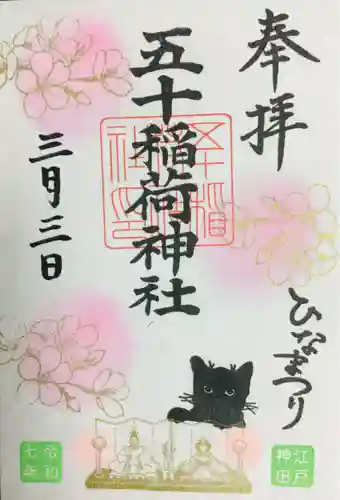 奉拝
ひなまつり
五十稲荷神社
三月三日
江戸
神田
令和
七年